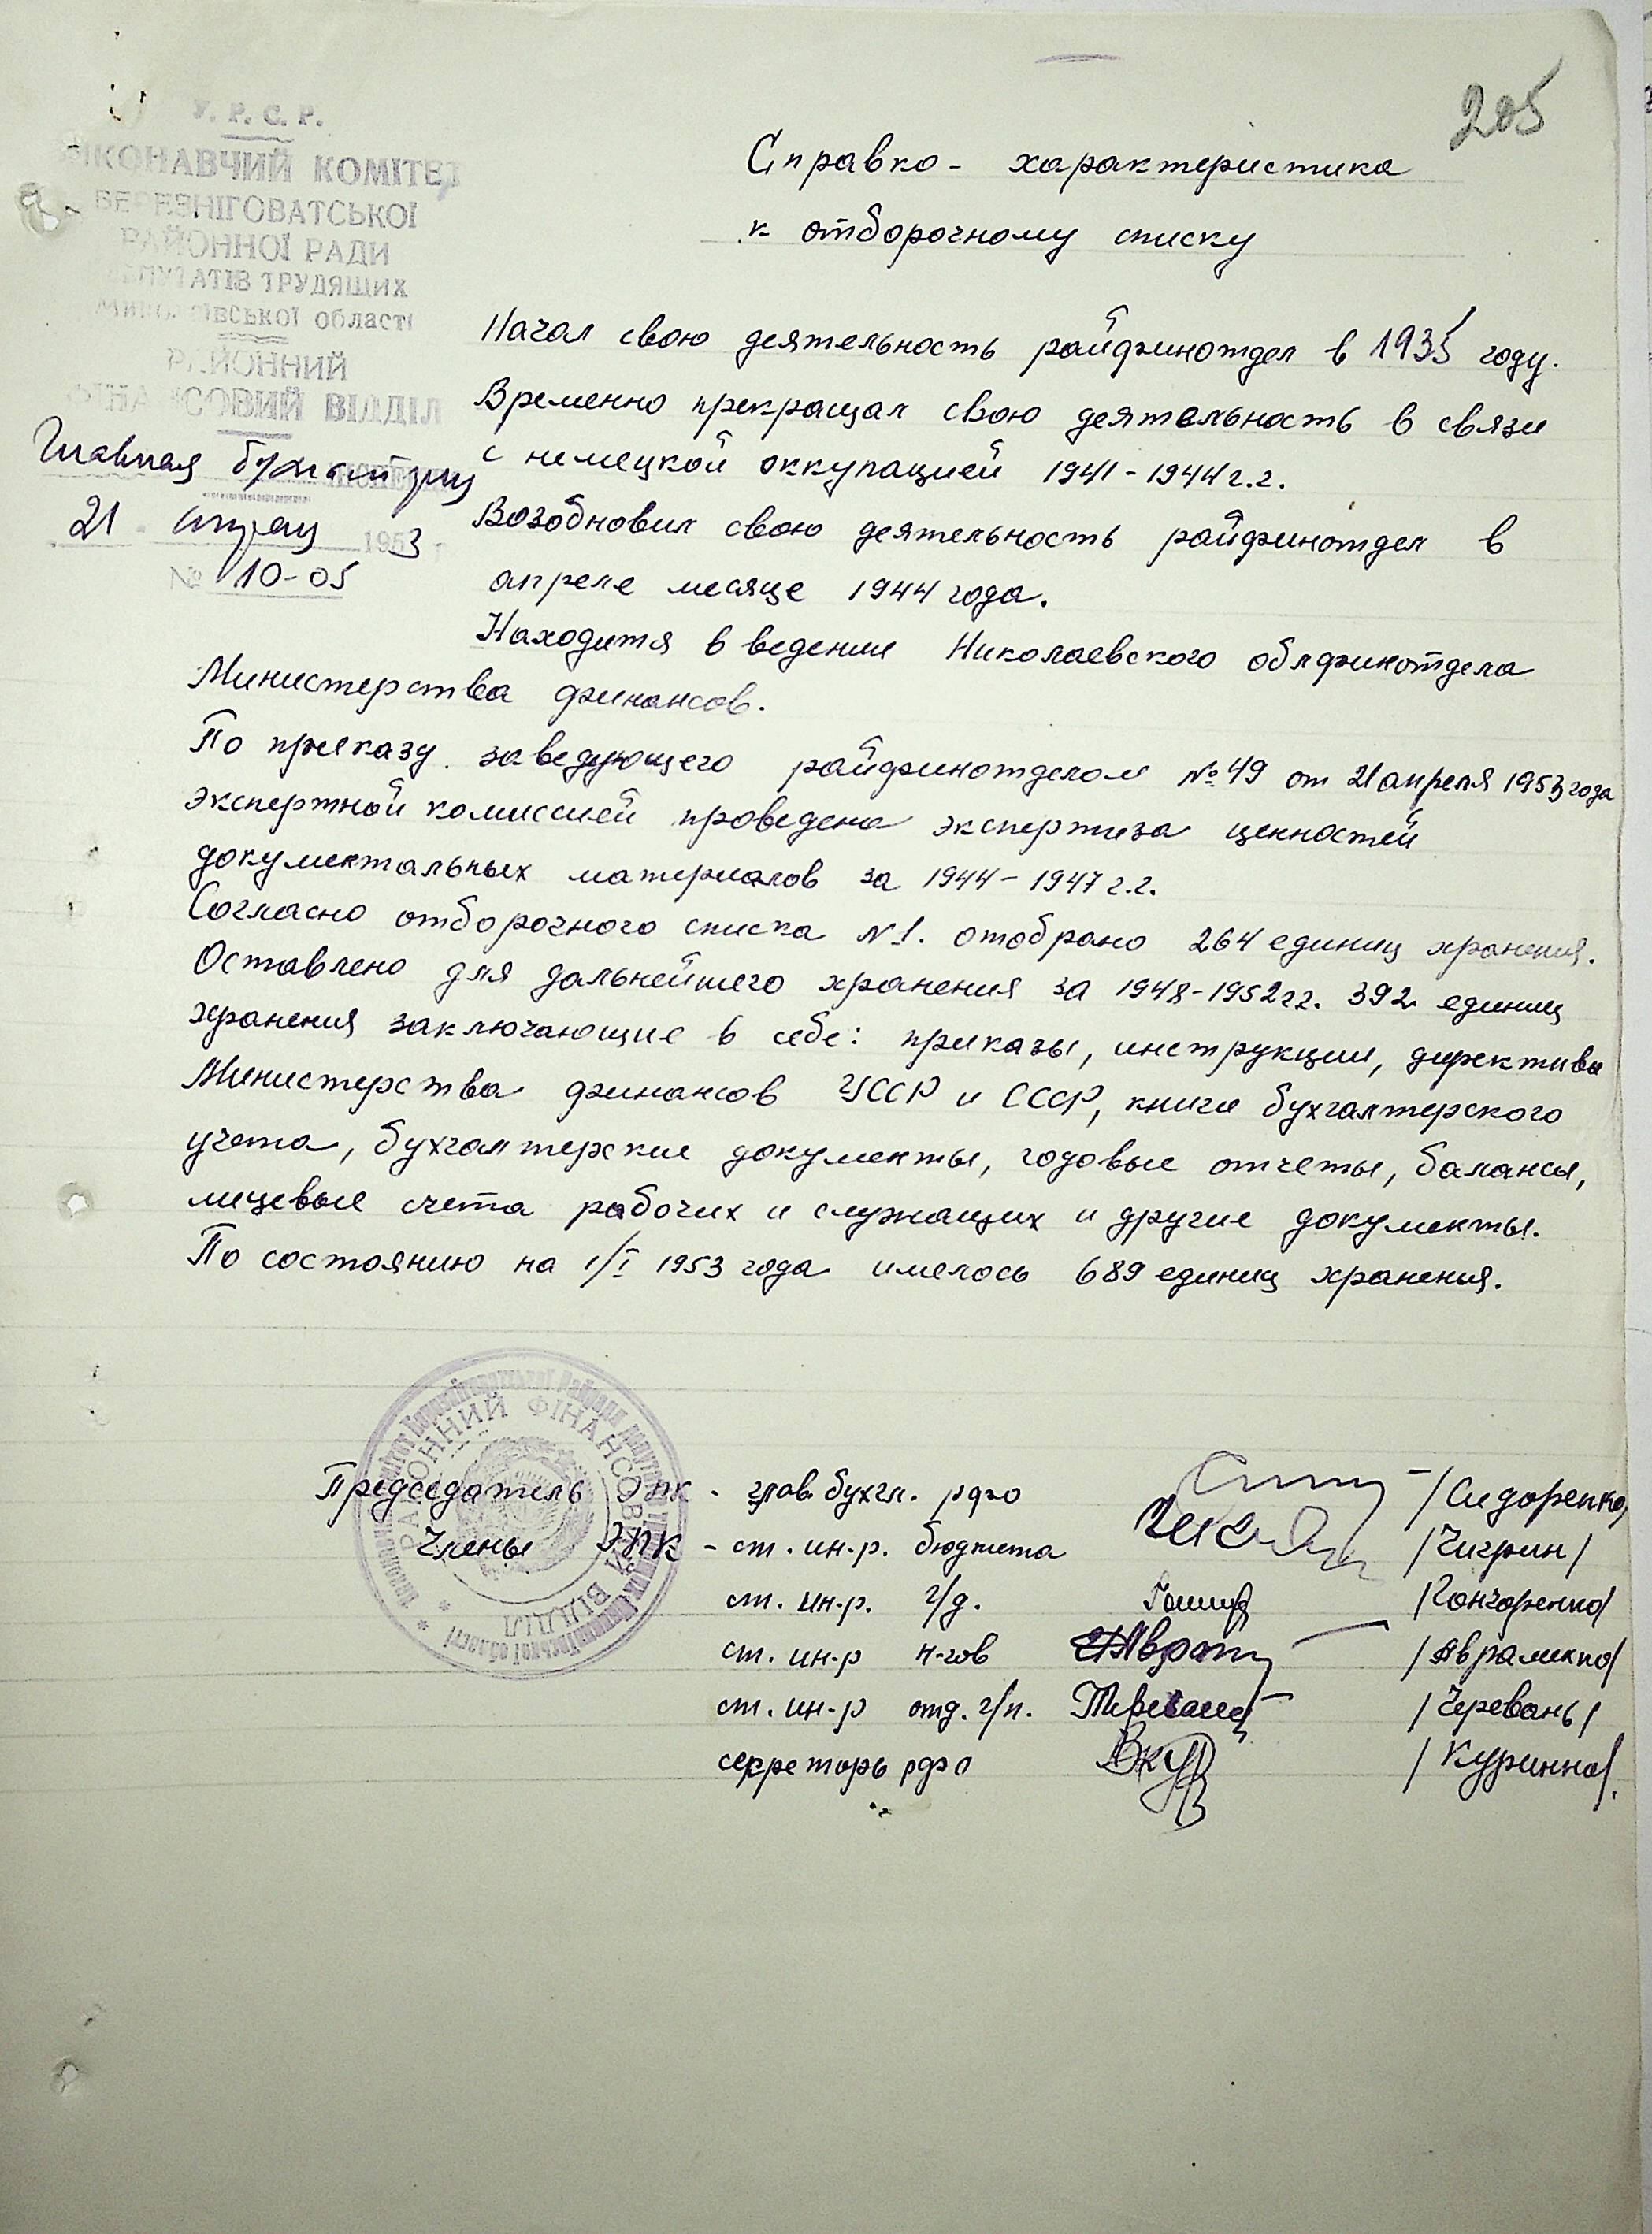 205
У. Р. С. Р.
ВИКОНАВЧИЙ КОМІТЕТ
БЕРЕЗНІГОВАТСЬКОЇ
РАЙОННОЇ РАДИ
ДЕПУТАТІВ ТРУДЯЩИХ
Миколаївської області
РАЙОННИЙ
ФІНАНСОВИЙ ВІДДІЛ
Главная бухгалтерия
21 апреля 1953
№ 10-05
Справка - характеристика
к отборочному списку
Начал свою деятельность райфинотдел в 1935 году.
Временно прекращал свою деятельность в связи
с немецкой оккупацией 1941-1944 г.г.
Возобновил свою деятельность райфинотдел в
апреле месяце 1944 года.
Находится в ведении Николаевского облфинотдела
Министерства финансов.
По приказу заведующего райфинотделом № 49 от 21 апреля 1953 года
экспертной комиссией проведена экспертиза ценностей
документальных материалов за 1944-1947 г.г.
Согласно отборочного списка N1. отобрано 264 единиц хранения.
Оставлено для дальнейшего хранения за 1948-1952 гг. 392 единиц
хранения заключающие в себе: приказы, инструкции, директивы
Министерства финансов УССР и СССР, книги бухгалтерского
учета, бухгалтерские документы, годовые отчеты, балансы,
лицевые счета рабочих и служащих и другие документы.
По состоянию на 1/I 1953 года имелось 689 единиц хранения.
РАЙОННИЙ ФІНАНСОВИЙ ВІДДІЛ
Председатель ЭПК - глав. бухгл. рфо /Сидоренко/
Члены ЭПК - ст. ин-р. бюджета /Чигрин/
ст. ин-р. г/д. /Гончаренко/
ст. ин-р н-гов /Авраменко/
ст. ин-р отд. г/п. /Черевань/
секретарь рфо /Куринна/.